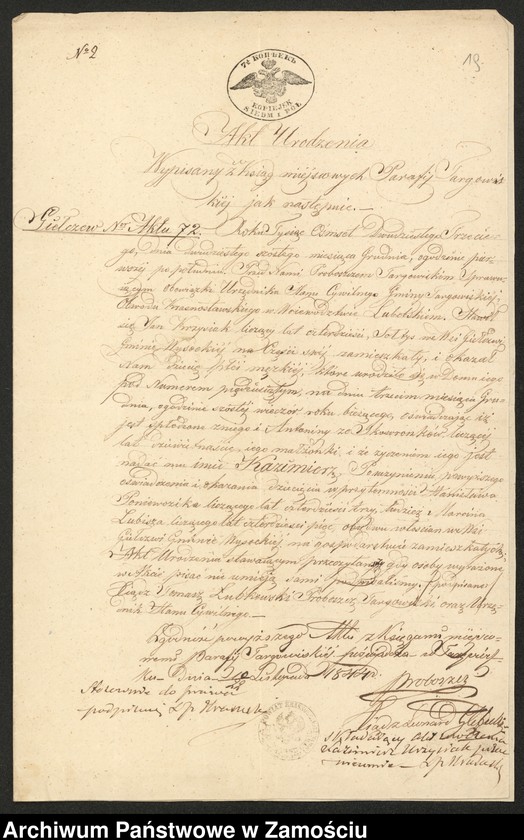 No 2
19
7½ КОПѢЕКЪ
KOPIEJEK
SIEDM I PÓŁ
Akt Urodzenia
Wypisany z Ksiąg miejscowych Parafij Targowis
kiej jak następuie. –
Gułczew No Aktu 72. – Roku Tysiąc Ośmset Dwudziestego Trzecie
go, dnia dwudziestego szóstego miesiąca Grudnia, o godzinie pier
wszej po południu. Przed Nami Proboszczem Targowiskim Sprawu
jącym obowiązki Urzędnika Stanu Cywilnego Gminy Targowiskiej,
Obwodu Krasnostawskiego w Województwie Lubelskim. Stawił
się Jan Krzysiek liczący lat czterdzieści, Sołtys we Wsi
Gminie Wysokiej na Części swej zamieszkały, i okazał
Nam dziecię płci męzkiej, które urodziło się w Domu iego
pod Numerem piędziesiątym, na dniu trzecim miesiąca Gru
dnia, o godzinie szóstej wieczór roku bieżącego, oświadczając iż
jest spłodzone z niego i Antoniny ze Skowronków liczącej
lat dziewiętnaście, iego małżonki i że życzeniem iego jest
nadać mu imie Kazimierz. Po uczynieniu powyższego
oświadczenia i okazania dziecięcia w przytomności Stanisława
Poniewozika liczącego lat czterdzieści trzy, tudzież Marcina
Lubisza liczącego lat czterdzieści pięć, obudwu włościan we Wsi
Gminie Wysokiej na gospodarstwie zamieszkałych
Akt Urodzenia stawaiącym przeczytany gdy osoby wyrażone
w Akcie pisać nie umieią sami podpisaliśmy. (podpisano)
Xiądz Tomasz Lubkowski Proboszcz Targowiski oraz Urzę
dnik Stanu Cywilnego. –
Zgodność powyższego Aktu z Księgami miejsco
wemi Parafij Targowiskiej poświadcza w
Dnia Listopada
Proboszcz
Xiądz Leonard
do
podpisuję
Składający Akt urodzenia
Kazimierz Krzysiak pisać
nieumie –
Archiwum Państwowe w Zamościu